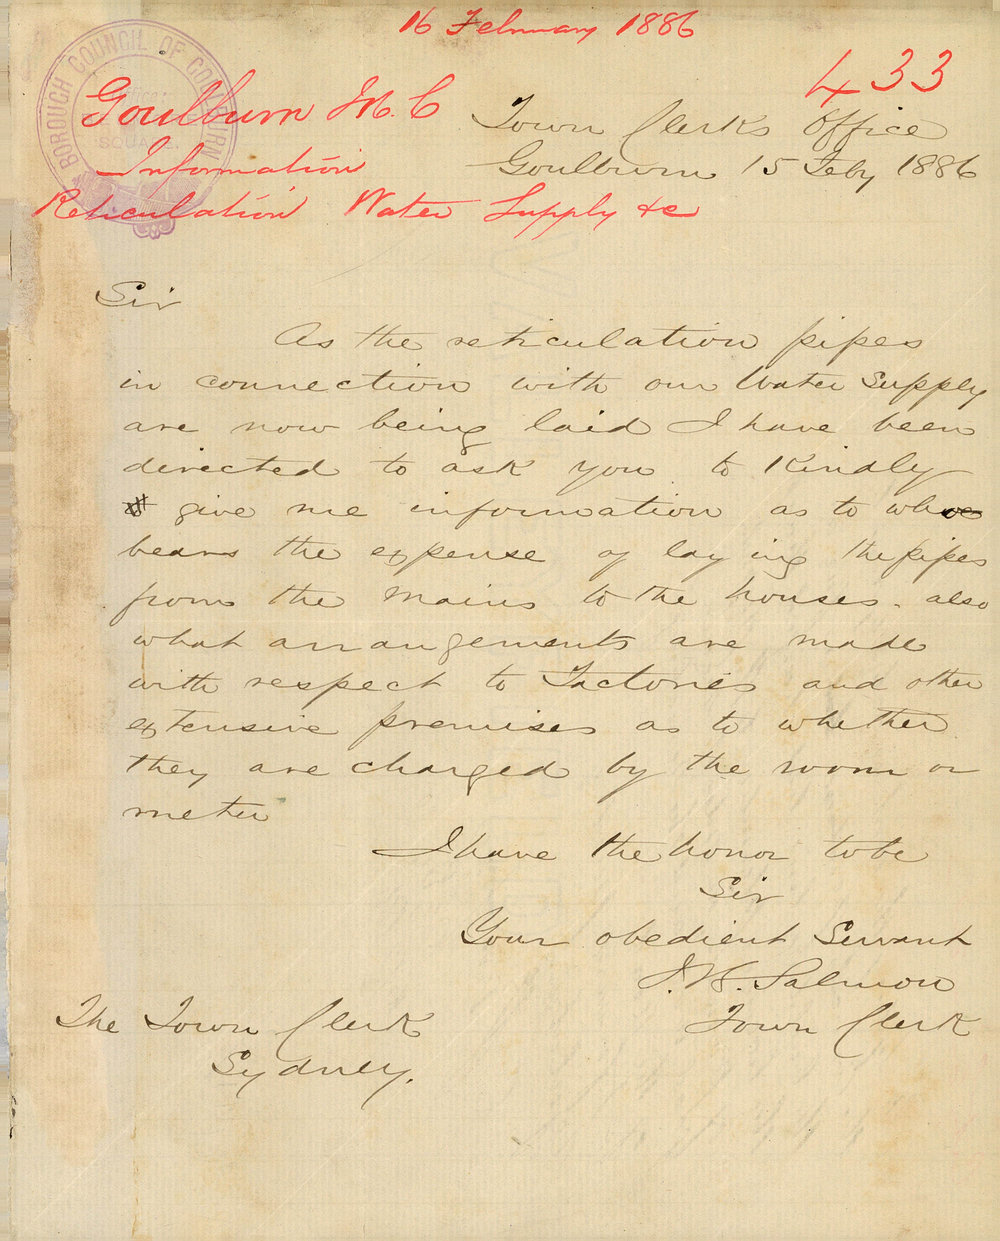 16 February 1886
433
BOROUGH COUNCIL OF GOULBURN
SQUARE.
Goulburn M. C
Information
Reticulation Water Supply &c
Town Clerks Office
Goulburn 15 Feby 1886
Sir
As the reticulation pipes
in connection with our Water Supply
are now being laid I have been
directed to ask you to Kindly
give me information as to who
bears the expense of laying the pipes
from the Mains to the houses. also
what arrangements are made
with respect to Factories and other
extensive premises as to whether
they are charged by the room or
meter
I have the honor to be
Sir
Your obedient Servant
J. W. Salmon
Town Clerk
The Town Clerk
Sydney.